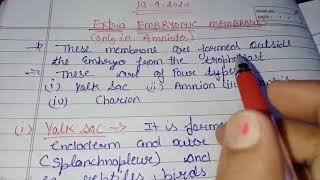 19-9-2020
Extra EMBRYONIC MEMBRANE
(only in Amniotes)
* These membrane are formed outside
the Embryo from the trophoblast
⇒ These are of four types
(i) Yalk Sac (ii) Amnion (iii)
(iv) Chorion
(i) Yalk Sac → It is form
Endoderm and outer
(Splanchnopleur) and
reptiles, birds